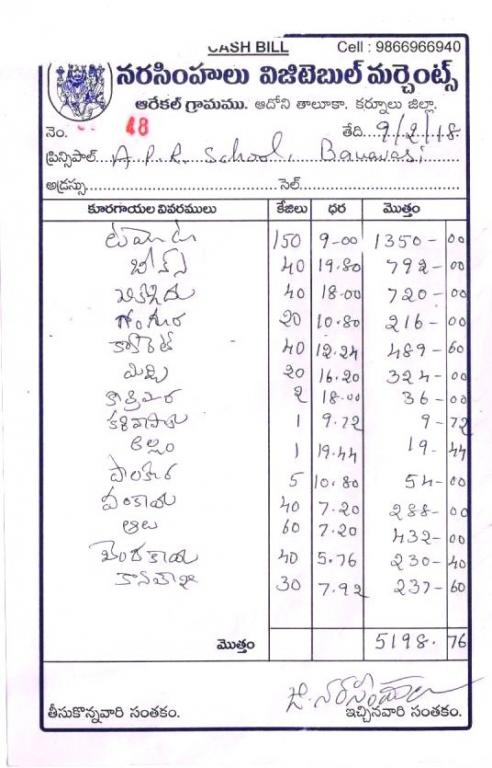 CASH BILL Cell : 9866966940
నరసింహులు విజిటెబుల్ మర్చెంట్స్
ఆరేకల్ గ్రామము. ఆదోని తాలూకా. కర్నూలు జిల్లా.
నెం. 48 తేది. 9/2/18
ప్రిన్సిపాల్ A.P.R. School, Banavasi
అడ్రస్సు సెల్
కూరగాయల వివరములు కేజీలు ధర మొత్తం
టమాట 150 9-00 1350-00
బీన్స్ 40 19.80 792-00
40 18.00 720-00
గోంగూర 20 10.80 216-00
క్యారెట్ 40 12.24 489-60
మిర్చి 20 16.20 324-00
కొత్తిమీర 2 18.00 36-00
కరివేపాకు 1 9.72 9-72
అల్లం 1 19.44 19-44
పాలకూర 5 10.80 54-00
వంకాయ 40 7.20 288-00
ఆలు 60 7.20 432-00
బెండకాయ 40 5.76 230-40
30 7.92 237-60
మొత్తం 5198.76
తీసుకొన్నవారి సంతకం. ఇచ్చినవారి సంతకం.